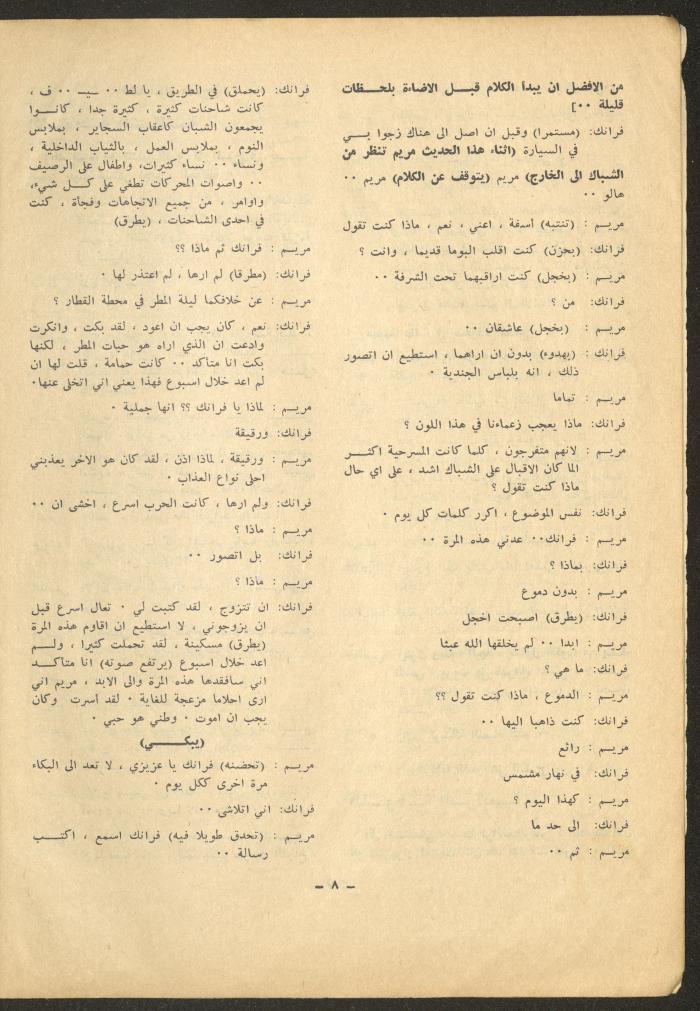 من الافضل ان يبدأ الكلام قبـــل الاضاءة بلحظــات
قليلة ٠٠]
فرانك: (مستمرا) وقبل ان اصل الى هناك زجوا بـــي
في السيارة (اثناء هذا الحديث مريم تنظر من
الشباك الى الخارج) مريم (يتوقف عن الكلام) مريم ٠٠
هالو ٠٠
مريــم : (تنتبه) أسفة ، اعني ، نعم ، ماذا كنت تقول
فرانك: (بحزن) كنت اقلب البوما قديما ، وانت ؟
مريــم : (بخجل) كنت اراقبهما تحت الشرفة ٠٠
فرانك: من ؟
مريــم : (بخجل) عاشقان ٠٠
فرانك: (بهدوء) بدون ان اراهما ، استطيع ان اتصور
ذلك ، انه بلباس الجندية ٠
مريــم : تماما
فرانك: ماذا يعجب زعماءنا في هذا اللون ؟
مريــم : لانهم متفرجون ، كلما كانت المسرحية اكثـــر
الما كان الاقبال على الشباك اشد ، على اي حال
ماذا كنت تقول ؟
فرانك: نفس الموضوع ، اكرر كلمات كل يوم ٠
مريــم : فرانك٠٠ عدني هذه المرة ٠٠
فرانك: بماذا ؟
مريــم : بدون دموع
فرانك: (يطرق) اصبحت اخجل
مريــم : ابدا ٠٠ لم يخلقها الله عبثا
فرانك: ما هي ؟
مريــم : الدموع ، ماذا كنت تقول ؟؟
فرانك: كنت ذاهبا اليها ٠٠
مريــم : رائع
فرانك: في نهار مشمس
مريــم : كهذا اليوم ؟
فرانك: الى حد ما
مريــم : ثم ٠٠
فرانك: (يحملق) في الطريق ، يا لط ٠٠ ـيـ ٠٠ ف ،
كانت شاحنات كثيرة ، كثيرة جدا ، كانـــوا
يجمعون الشبان كاعقاب السجاير ، بملابس
النوم ، بملابس العمل ، بالثياب الداخلية ،
ونساء ٠٠ نساء كثيرات، واطفال على الرصيف
٠٠ واصوات المحركات تطغي على كـــل شيء،
واوامر ، من جميع الاتجاهات وفجأة ، كنت
في احدى الشاحنات ، (يطرق)
مريــم : فرانك ثم ماذا ؟؟
فرانك: (مطرقا) لم ارها ، لم اعتذر لها ٠
مريــم : عن خلافكما ليلة المطر في محطة القطار ؟
فرانك: نعم ، كان يجب ان اعود ، لقد بكت ، وانكرت
وادعت ان الذي اراه هو حبات المطر ، لكنها
بكت انا متأكد ٠٠ كانت حمامة ، قلت لها ان
لم اعد خلال اسبوع فهذا يعني اني اتخلى عنها٠
مريــم : لماذا يا فرانك ؟؟ انها جميلة ٠
فرانك: ورقيقة
مريــم : ورقيقة ، لماذا اذن ، لقد كان هو الاخر يعذبني
احلى نواع العذاب ٠
فرانك: ولم ارها ، كانت الحرب اسرع ، اخشى ان ٠٠
مريــم : ماذا ؟
فرانك: بل اتصور ٠٠
مريــم : ماذا ؟
فرانك: ان تتزوج ، لقد كتبت لي ٠ تعال اسرع قبل
ان يزوجوني ، لا استطيع ان اقاوم هذه المرة
(يطرق) مسكينة ، لقد تحملت كثيرا ، ولـــم
اعد خلال اسبوع (يرتفع صوته) انا متأكـــد
اني سافقدها هذه المرة والى الابد ، مريم اني
ارى احلاما مزعجة للغاية ٠ لقد أسرت وكان
يجب ان اموت ٠ وطني هو حبي ٠
(يبكـــي)
مريــم : (تحضنه) فرانك يا عزيزي ، لا تعد الى البكاء
مرة اخرى ككل يوم ٠
فرانك: اني اتلاشى ٠٠
مريــم : (تحدق طويلا فيه) فرانك اسمع ، اكتـــب
رسالة ٠٠
– ٨ –